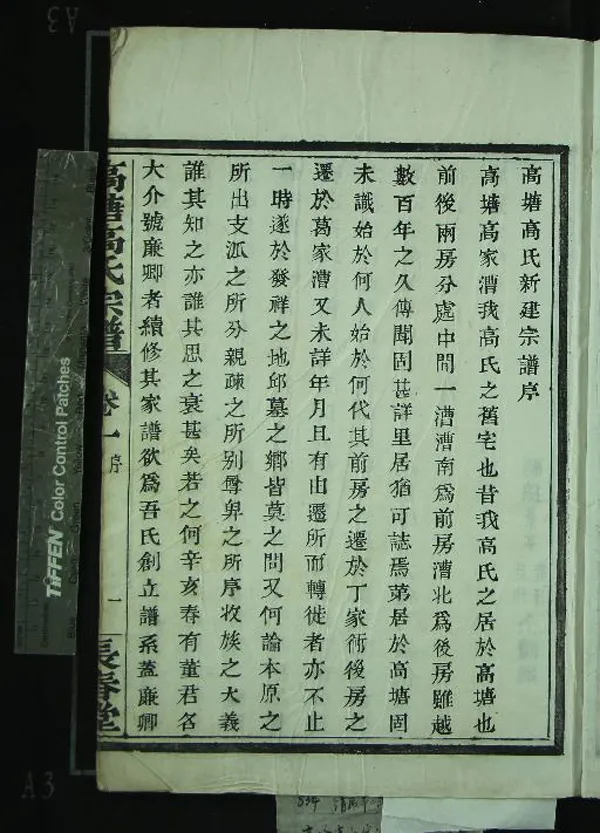 高塘高氏新建宗譜序
高塘高家漕我高氏之舊宅也昔我高氏之居於高塘也
前後兩房分處中間一漕漕南爲前房漕北爲後房雖越
數百年之久傳聞固甚詳里居猶可誌焉第居於高塘固
未識始於何人始於何代其前房之遷於丁家衖後房之
遷於葛家漕又未詳年月且有由遷所而轉徙者亦不止
一時遂於發祥之地邱墓之鄉皆莫之問又何論本原之
所出支派之所分親疎之所别尊卑之所序收族之大義
誰其知之亦誰其思之衰甚矣若之何辛亥春有董君名
大介號廉卿者續修其家譜欲爲吾氏創立譜系蓋廉卿
高塘高氏宗譜
卷一
序
一
長春堂
TIFFEN Color Control Patches
A3
A3
834